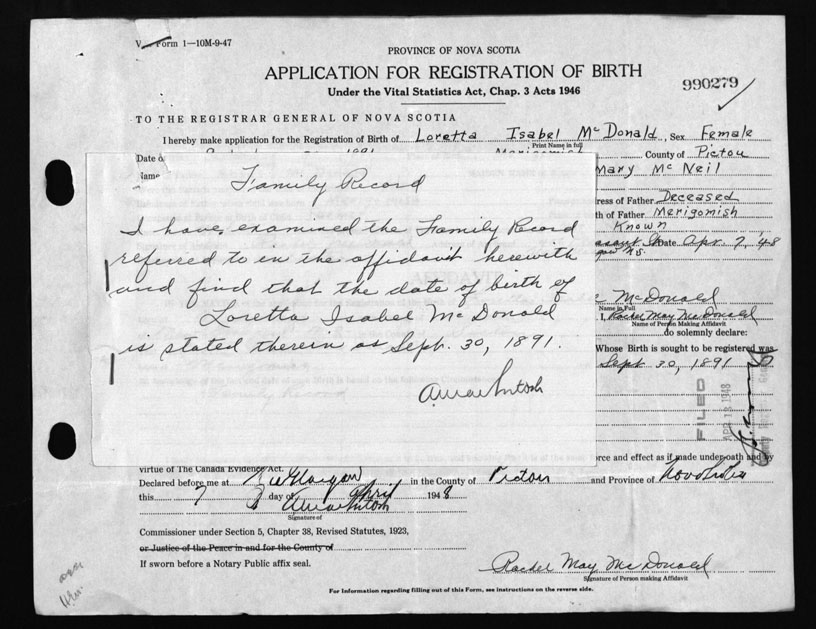 Form 1—10M-9-47
PROVINCE OF NOVA SCOTIA
APPLICATION FOR REGISTRATION OF BIRTH
Under the Vital Statistics Act, Chap. 3 Acts 1946
990279
TO THE REGISTRAR GENERAL OF NOVA SCOTIA
I hereby make application for the Registration of Birth of Loretta Isabel McDonald, Sex Female
Print Name in full
Date 1891 Merigomish County of Pictou
Name Mary McNeil
Family Record
I have examined the Family Record
referred to in the affidavit herewith
and find that the date of birth of
Loretta Isabel McDonald
is stated therein as Sept. 30, 1891.
ress of Father Deceased
th of Father Merigomish
Known
Date Apr. 7, '48
McDonald
Name in Full
I, Rachel May McDonald
Name of Person Making Affidavit
do solemnly declare:
Whose Birth is sought to be registered was
Sept 30, 1891
FILED
APR 13 1948
orce and effect as if made under oath and by
virtue of The Canada Evidence Act.
Declared before me at in the County of Pictou and Province of Nova Scotia
this 7 day of April 1948
Signature of
Commissioner under Section 5, Chapter 38, Revised Statutes, 1923,
or Justice of the Peace in and for the County of
If sworn before a Notary Public affix seal.
Rachel May McDonald
Signature of Person making Affidavit
For Information regarding filling out of this Form, see instructions on the reverse side.